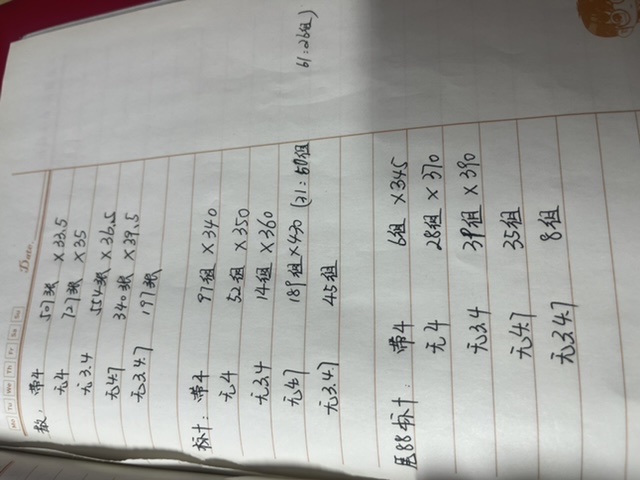 Mo Tu We Th Fr Sa Su Date
散: 带4 507张 ×33.5
无4 727张 ×35
无3.4 554张 ×36.5
无4.7 340张 ×39.5
无3.4.7 197张
标十: 带4 97组 ×340
无4 52组 ×350
无3.4 14组 ×360
无4.7 189组 ×430 (31:50组
61:26组)
无3.4.7 45组
尾88标十: 带4 6组 ×345
无4 28组 ×370
无3.4 39组 ×390
无4.7 35组
无3.4.7 8组